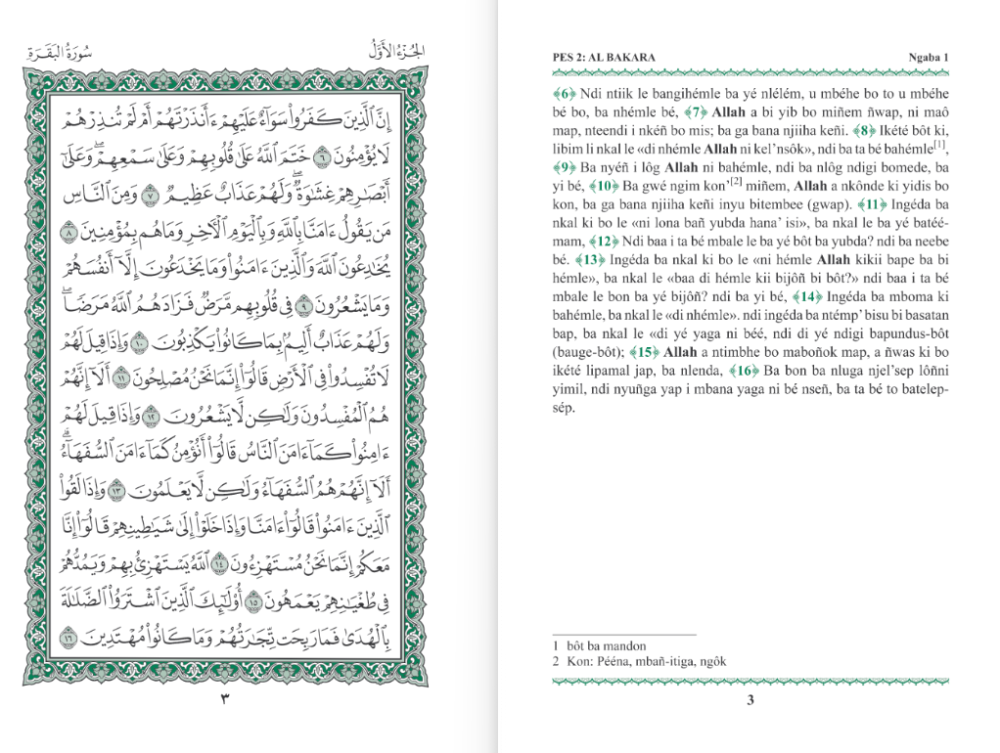 سُورَةُ البَقَرَةِ
الجُزْءُ الأَوَّلُ
إِنَّ ٱلَّذِينَ كَفَرُوا۟ سَوَآءٌ عَلَيْهِمْ ءَأَنذَرْتَهُمْ أَمْ لَمْ تُنذِرْهُمْ
لَا يُؤْمِنُونَ ٦ خَتَمَ ٱللَّهُ عَلَىٰ قُلُوبِهِمْ وَعَلَىٰ سَمْعِهِمْ ۖ وَعَلَىٰٓ
أَبْصَٰرِهِمْ غِشَٰوَةٌ ۖ وَلَهُمْ عَذَابٌ عَظِيمٌ ٧ وَمِنَ ٱلنَّاسِ
مَن يَقُولُ ءَامَنَّا بِٱللَّهِ وَبِٱلْيَوْمِ ٱلْءَاخِرِ وَمَا هُم بِمُؤْمِنِينَ ٨
يُخَٰدِعُونَ ٱللَّهَ وَٱلَّذِينَ ءَامَنُوا۟ وَمَا يَخْدَعُونَ إِلَّآ أَنفُسَهُمْ
وَمَا يَشْعُرُونَ ٩ فِى قُلُوبِهِم مَّرَضٌ فَزَادَهُمُ ٱللَّهُ مَرَضًا ۖ
وَلَهُمْ عَذَابٌ أَلِيمٌۢ بِمَا كَانُوا۟ يَكْذِبُونَ ١٠ وَإِذَا قِيلَ لَهُمْ
لَا تُفْسِدُوا۟ فِى ٱلْأَرْضِ قَالُوٓا۟ إِنَّمَا نَحْنُ مُصْلِحُونَ ١١ أَلَآ إِنَّهُمْ
هُمُ ٱلْمُفْسِدُونَ وَلَٰكِن لَّا يَشْعُرُونَ ١٢ وَإِذَا قِيلَ لَهُمْ
ءَامِنُوا۟ كَمَآ ءَامَنَ ٱلنَّاسُ قَالُوٓا۟ أَنُؤْمِنُ كَمَآ ءَامَنَ ٱلسُّفَهَآءُ ۗ
أَلَآ إِنَّهُمْ هُمُ ٱلسُّفَهَآءُ وَلَٰكِن لَّا يَعْلَمُونَ ١٣ وَإِذَا لَقُوا۟
ٱلَّذِينَ ءَامَنُوا۟ قَالُوٓا۟ ءَامَنَّا وَإِذَا خَلَوْا۟ إِلَىٰ شَيَٰطِينِهِمْ قَالُوٓا۟ إِنَّا
مَعَكُمْ إِنَّمَا نَحْنُ مُسْتَهْزِءُونَ ١٤ ٱللَّهُ يَسْتَهْزِئُ بِهِمْ وَيَمُدُّهُمْ
فِى طُغْيَٰنِهِمْ يَعْمَهُونَ ١٥ أُو۟لَٰٓئِكَ ٱلَّذِينَ ٱشْتَرَوُا۟ ٱلضَّلَٰلَةَ
بِٱلْهُدَىٰ فَمَا رَبِحَت تِّجَٰرَتُهُمْ وَمَا كَانُوا۟ مُهْتَدِينَ ١٦
٣
PES 2: AL BAKARA
Ngaba 1
﴾6﴿ Ndi ntiik le bangihémle ba yé nlélém, u mbéhe bo to u mbéhe
bé bo, ba nhémle bé, ﴾7﴿ Allah a bi yib bo miñem ñwap, ni maô
map, nteendi i nkéñ bo mis; ba ga bana njiiha keñi. ﴾8﴿ Ikété bôt ki,
libim li nkal le «di nhémle Allah ni kel'nsôk», ndi ba ta bé bahémle[1],
﴾9﴿ Ba nyéñ i lôg Allah ni bahémle, ndi ba nlôg ndigi bomede, ba
yi bé, ﴾10﴿ Ba gwé ngim kon'[2] miñem, Allah a nkônde ki yidis bo
kon, ba ga bana njiiha keñi inyu bitembee (gwap). ﴾11﴿ Ingéda ba
nkal ki bo le «ni lona bañ yubda hana' isi», ba nkal le ba yé batéé-
mam, ﴾12﴿ Ndi baa i ta bé mbale le ba yé bôt ba yubda? ndi ba neebe
bé. ﴾13﴿ Ingéda ba nkal ki bo le «ni hémle Allah kikii bape ba bi
hémle», ba nkal le «baa di hémle kii bijôñ bi bôt?» ndi baa i ta bé
mbale le bon ba yé bijôñ? ndi ba yi bé, ﴾14﴿ Ingéda ba mboma ki
bahémle, ba nkal le «di nhémle». ndi ingéda ba ntémp' bisu bi basatan
bap, ba nkal le «di yé yaga ni béé, ndi di yé ndigi bapundus-bôt
(bauge-bôt); ﴾15﴿ Allah a ntimbhe bo maboñok map, a ñwas ki bo
ikété lipamal jap, ba nlenda, ﴾16﴿ Ba bon ba nluga njel'sep lôñni
yimil, ndi nyuñga yap i mbana yaga ni bé nseñ, ba ta bé to batelep-
sép.
1 bôt ba mandon
2 Kon: Pééna, mbañ-itiga, ngôk
3